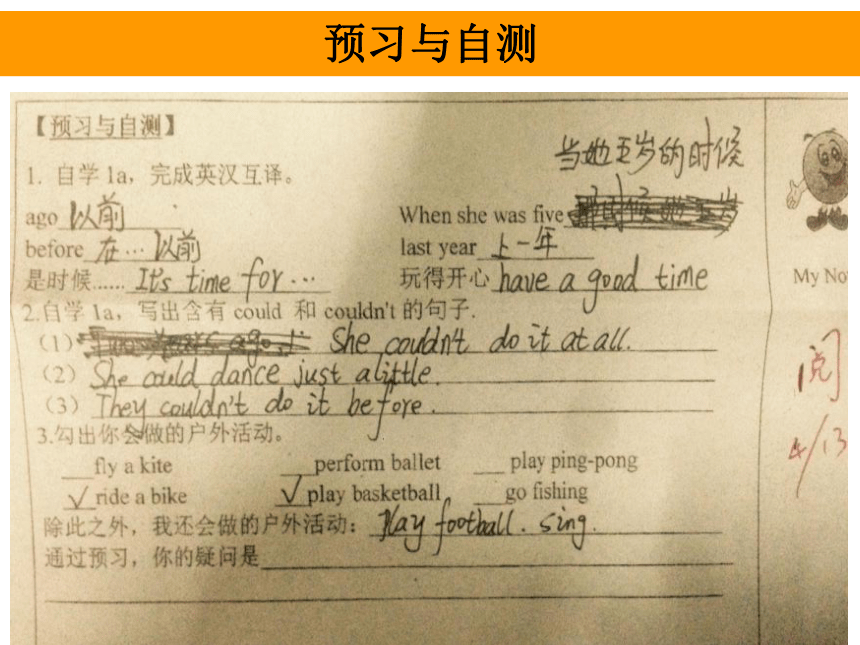 预习与自测
【预习与自测】
当她五岁的时候
1. 自学1a，完成英汉互译。
ago 以前 When she was five
before 在…以前 last year 上一年
是时候...... It's time for … 玩得开心 have a good time
My No
2.自学1a，写出含有 could 和 couldn't 的句子.
（1） She couldn't do it at all.
（2） She could dance just a little.
（3） They couldn't do it before.
阅
3.勾出你会做的户外活动。
4/13
__fly a kite __perform ballet __ play ping-pong
√ride a bike √play basketball __go fishing
除此之外，我还会做的户外活动: Play football. sing.
通过预习，你的疑问是